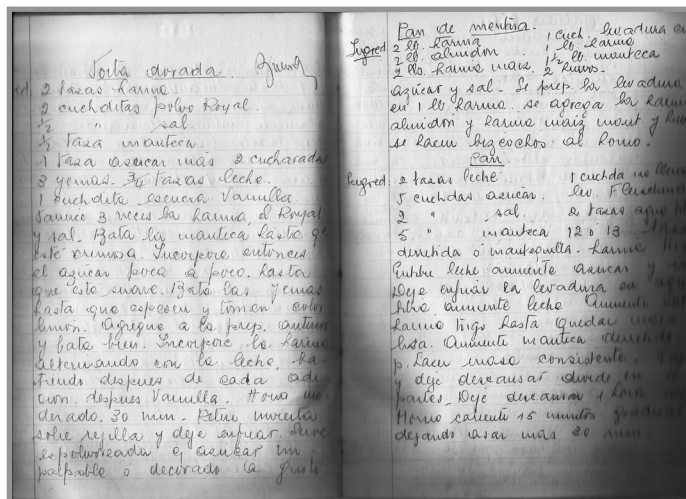 Torta dorada. Buena
2 tazas harina
2 cuchditas polvo Royal.
1/2 " sal.
1/2 taza manteca
1 taza azucar mas 2 cucharadas
3 yemas. 3/4 tazas leche.
1 cuchdita esencia Vainilla.
3 veces la harina, el Royal
y sal. Bata la manteca hasta q'
esté cremosa. Incorpore entonces
el azúcar poco a poco. hasta
que este suave. Bata las yemas
hasta que espesen y tomen color
limon. Agregue a la prep. anterior
y bata bien. Incorpore la harina
alternando con la leche, ba-
tiendo despues de cada adi
cion. despues Vainilla. Horno mo
derado. 30 min. Retire invierta
sobre rejilla y deje enfriar. Sirve
espolvoreada c, azucar im
palpable o decorado a gusto.
Pan de mentira.
Ingred 2 lb. harina 1 cuch. levadura en
2 lb. almidon 1 lb. harina
2 lb. harina maiz 1 1/2 lb. manteca
2 huevos.
azúcar y sal. Se prep. la levadura
en 1 lb. harina. se agrega la harina
almidon y harina maiz mant y
se hacen bizcochos al horno.
Pan.
Ingred: 2 tazas leche 1 cuchda no
5 cuchdas azucar. lev. Fleischmann
2 " sal. 2 tazas agua
5 " manteca 12 ó 13
derretida ó mantequilla. harina
Entibie leche aumente azucar y
Deje enfriar la levadura en agua
tibia aumente leche Aumente
harina trigo hasta quedar masa
lisa. Aumente manteca derretida
p. hacer masa consistente.
y deje descansar divide en
partes. Deje descansar 1 hora
Horno caliente 15 minutos
dejando asar más 30 min.